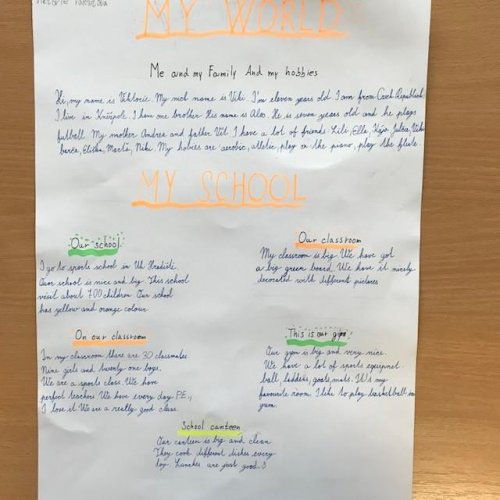 MY WORLD
Me and my Family And my hobbies
Hi, my name is Viktorie. My nick name is Viki. I'm eleven years old. I am from Czech Republic.
I live in Kněžpole. I have one brother. His name is Alex. He is seven years old and he plays
futball. My mother Andrea and father Vít. I have a lot of friends Lili, Ella, Kája, Julča,
Eliška, Marťa, Niki. My hobies are aerobic, atletic, play on the piano, play the flute.
MY SCHOOL
Our school
I go to sports school in Uh. Hradiště.
Our school is nice and big. This school
visit about 700 children. Our school
has yellow and orange colour.
Our classroom
My classroom is big. We have got
a big green board. We have it nicely
decorated with different pictures.
On our classroom
In my classroom there are 30 classmates.
Nine girls and twenty one boys.
We are a sports class. We have
perfect teachers. We have every day P.E.,
I love it. We are a really good class.
This is our gym
Our gym is big and very nice.
We have a lot of sports equipmet
ball, ladders, goals, mats. It's my
favourite room. I like to play basketball in
gym.
School canteen
Our canteen is big and clean.
They cook different dishes every
day. Lunches are just good. :)